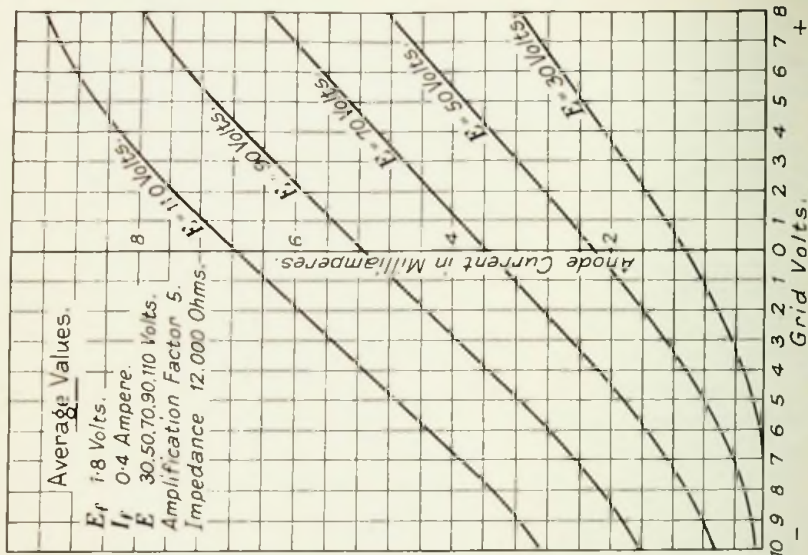 Average Values.
Ef 1·8 Volts.
If 0·4 Ampere.
E 30,50,70,90,110 Volts.
Amplification Factor 5.
Impedance 12,000 Ohms.
E = 110 Volts.
E = 90 Volts.
E = 70 Volts.
E = 50 Volts.
E = 30 Volts.
8
6
4
2
Anode Current in Milliamperes.
10 9 8 7 6 5 4 3 2 1 0 1 2 3 4 5 6 7 8
− Grid Volts. +